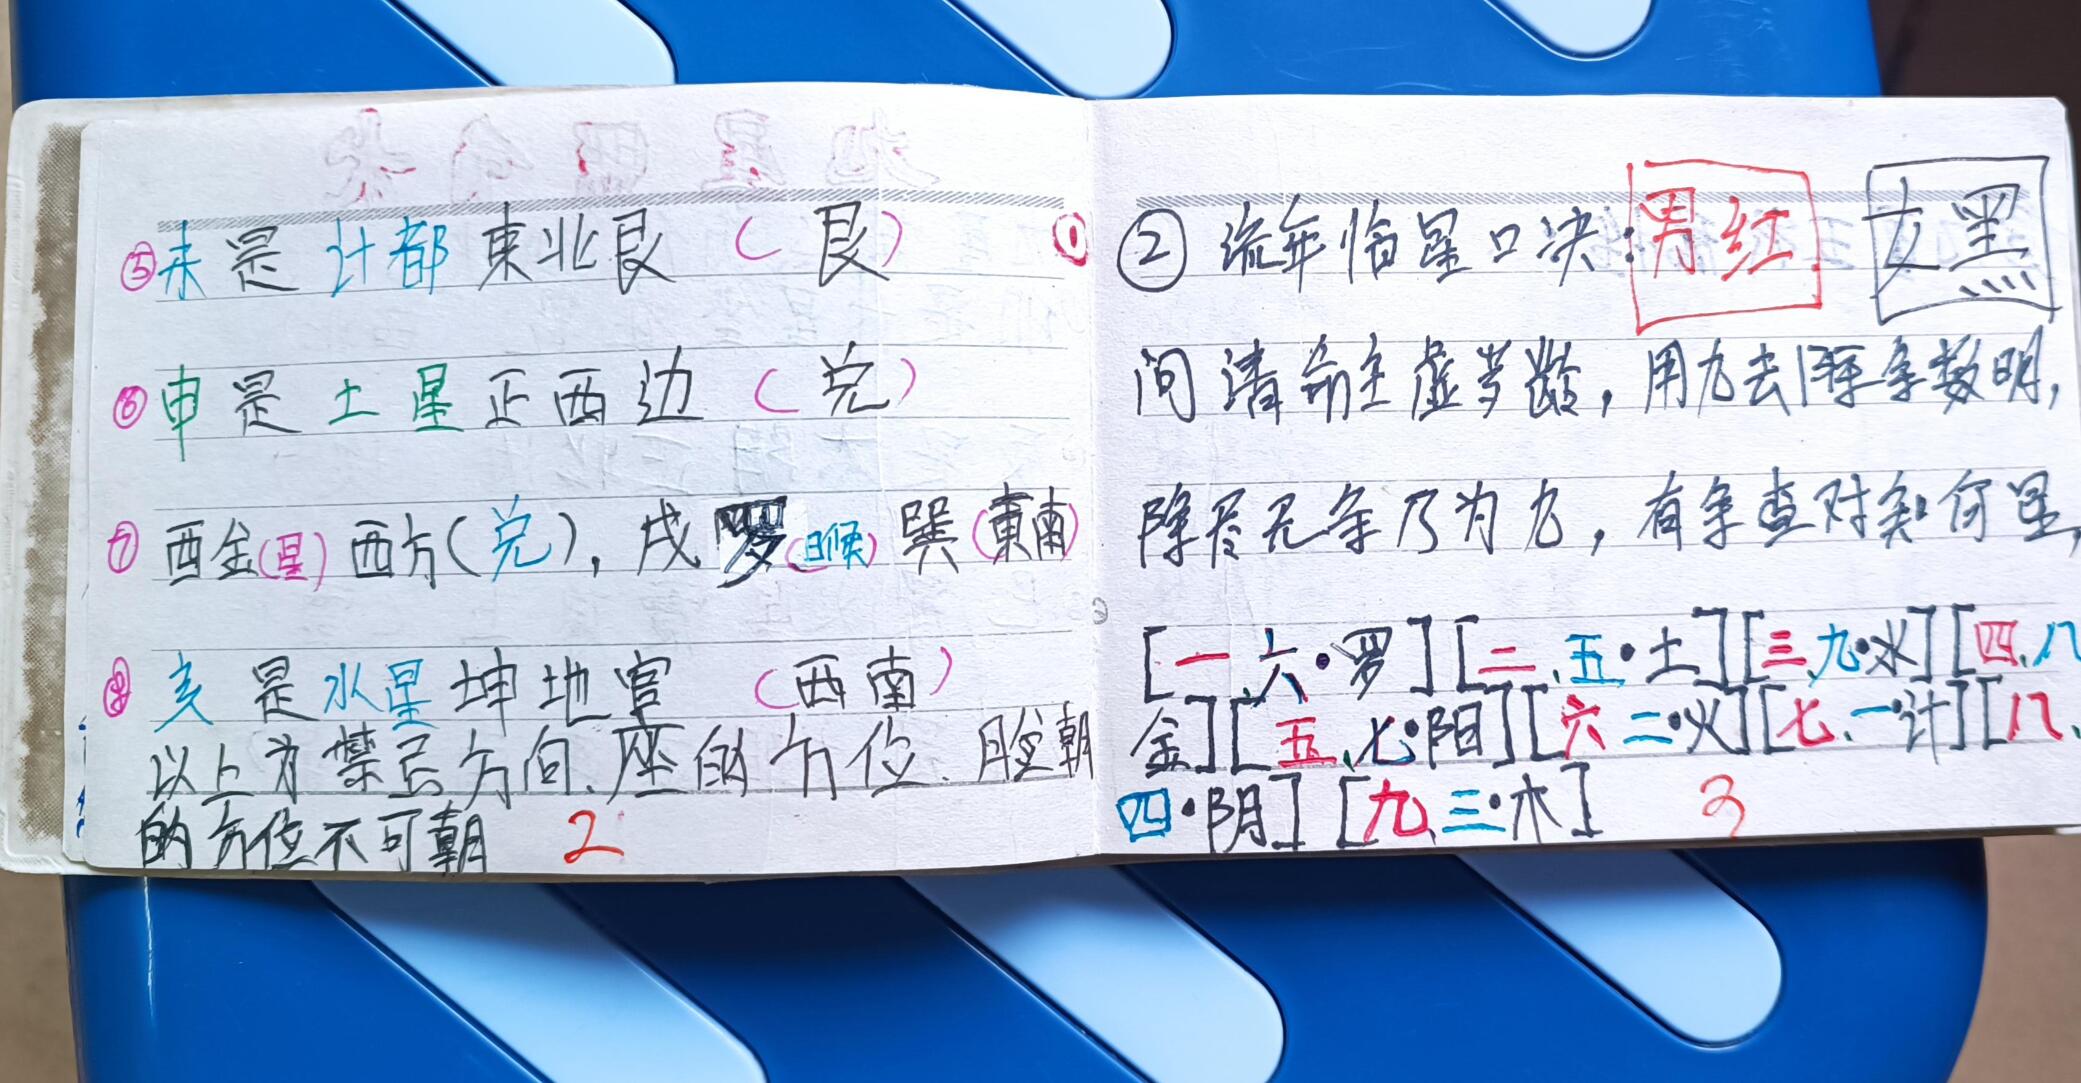 ⑤未是计都東北艮（艮）
⑥申是土星正西边（兑）
⑦酉金(星)西方(兑)，戌罗(日候)巽(東南)
⑧亥是水星坤地宫（西南）
以上为禁忌方向.座的方位.脸朝
的方位不可朝 2
① ②流年临星口决:男红 女黑
问清命主虚岁龄，用九去除余数明，
除尽无余乃为九，有余查对知何星，
[一、六·罗][二、五·土][三、九·水][四、八
金][五、七·阳][六 二·火][七、一·计][八、
四·阴][九、三·木] 3